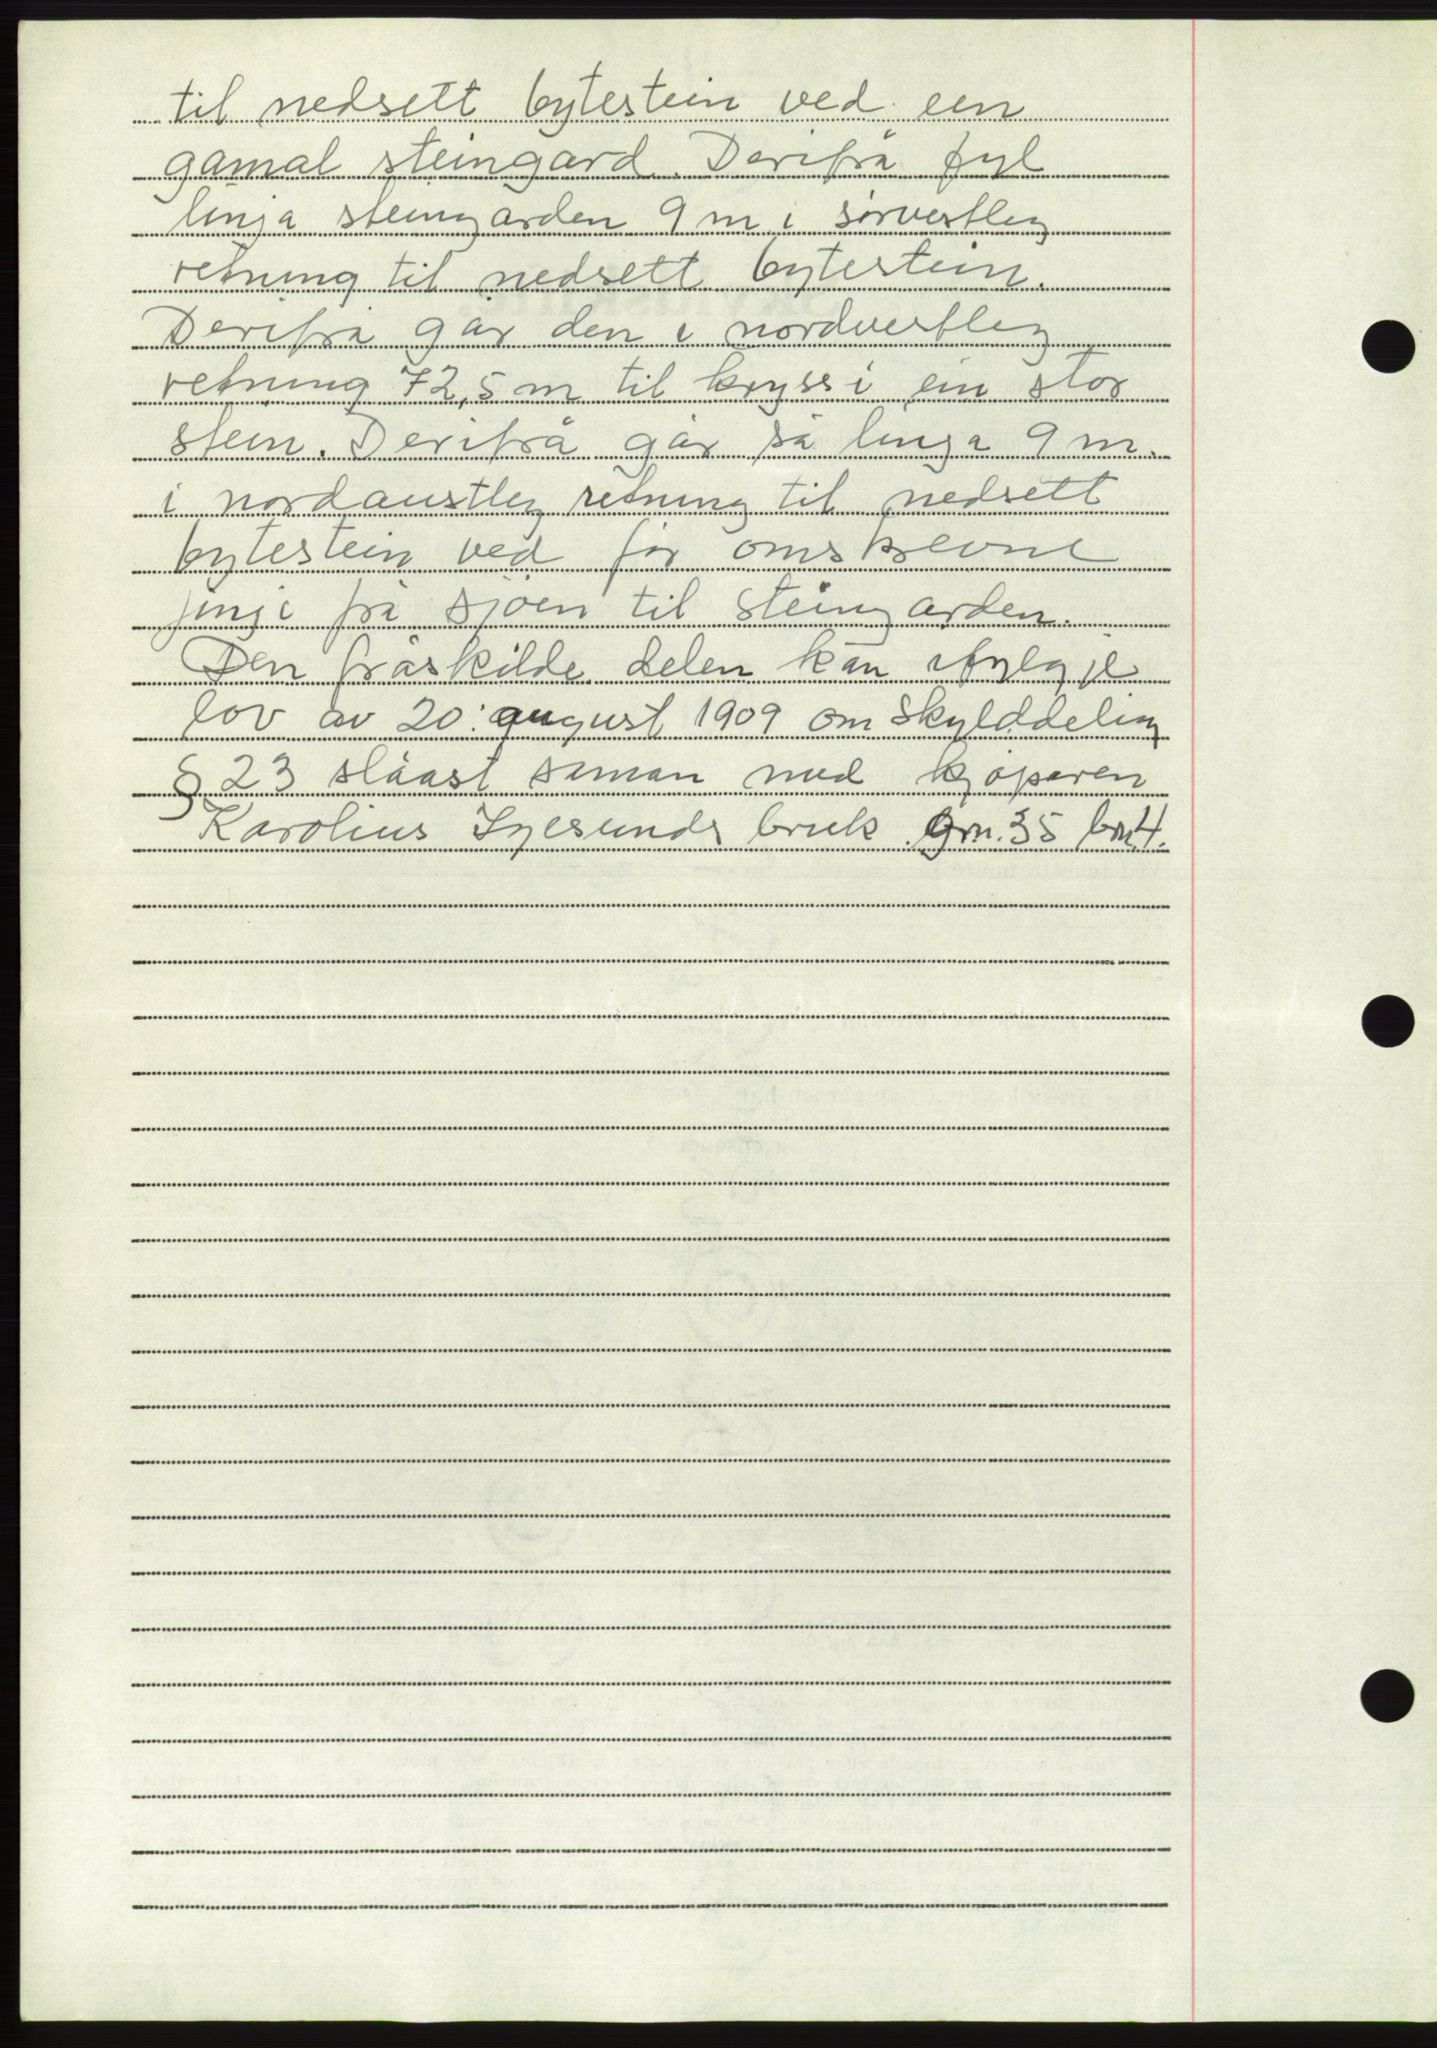 til nedsett bytestein ved een
gamal steingard. Derifrå fyl
linja steingarden 9 m i sørvestleg
retning til nedsett bytestein.
Derifrå går den i nordvestleg
retning 72,5 m til kryss i ein stor
stein. Derifrå går så linja 9 m.
i nordaustleg retning til nedsett
bytestein ved før omskrevne
linje frå sjøen til steingarden.
Den fråskilde delen kan ifylgje
lov av 20. august 1909 om skylddeling
§ 23 slåast saman med kjøparen
Karolius Igesunds bruk grn. 35 brn. 4.